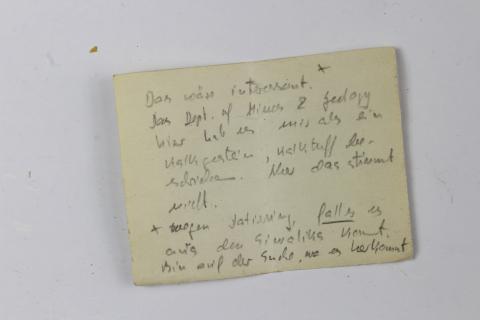 Das wäre interessant. *
Das Dept. of Mines & Geology
hier hat es mir als ein
Kalkgestein, Kalktuff be-
schrieben. Aber das stimmt
nicht.
* wegen Datierung, falls es
aus den Siwaliks kommt.
Bin auf der Suche, wo es herkommt